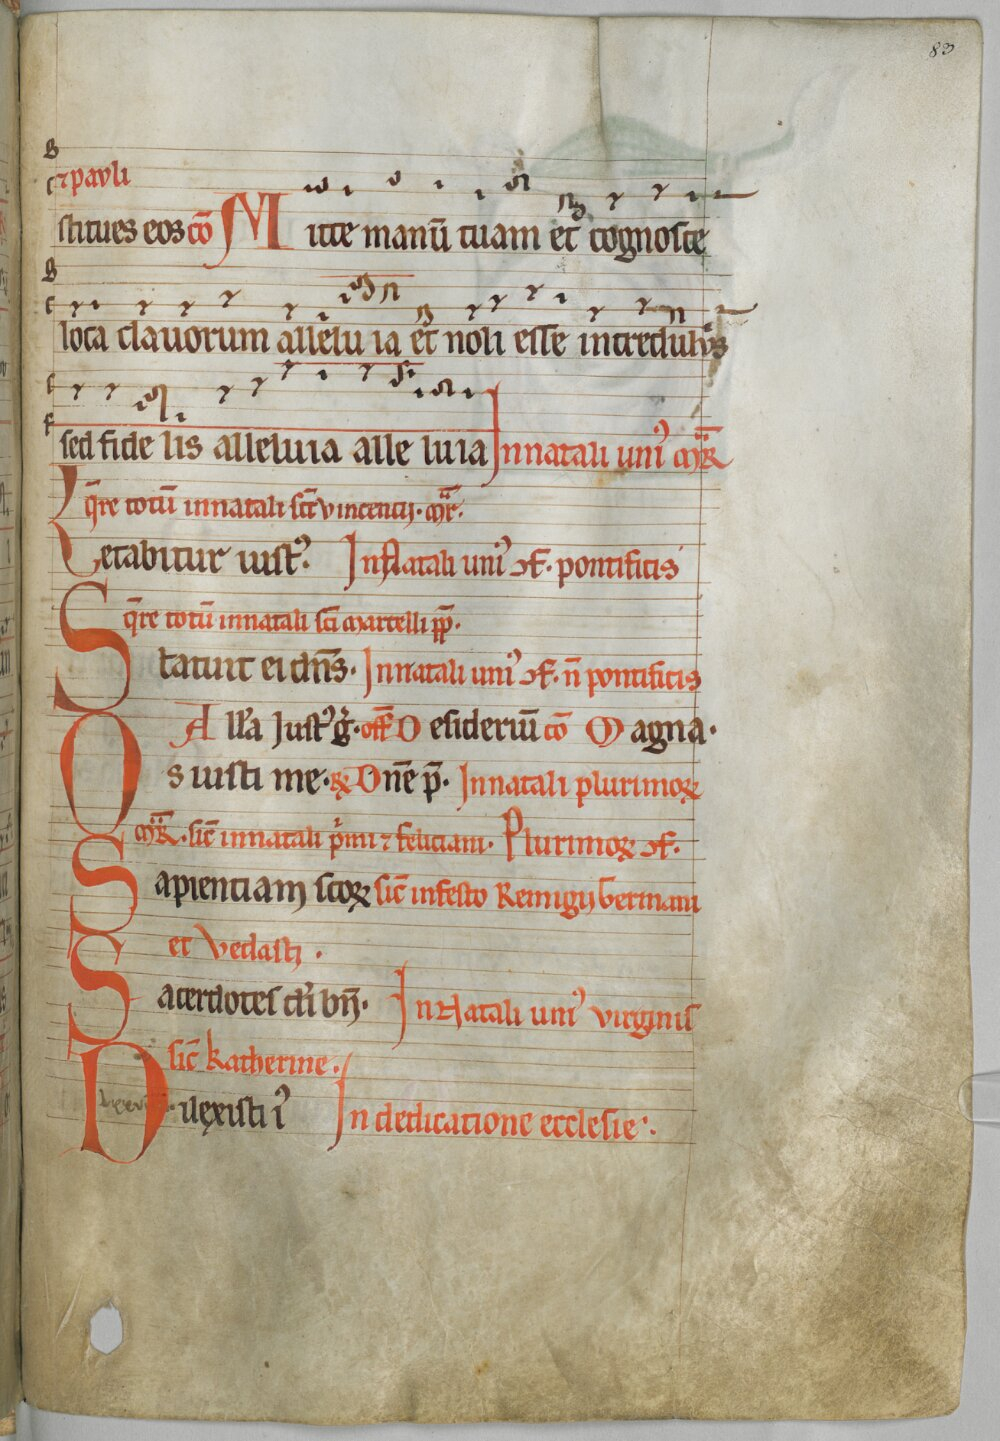 83
⁊ pauli
stitues eos cō Mitte manū tuam et cognosce
loca clauorum alleluia et noli esse incredulus
sed fidelis alleluia alleluia In natali uniꝰ mr̄
q̄re totū in natali sc̄i vincentij · mr̄ ·
Letabitur iustꝰ · In Natali uniꝰ ꝯf · pontificis
q̄re totū in natali sc̄i marcelli pp̄ ·
Statuit ei dn̄s · In natali uniꝰ ꝯf · n̄ pontificis
All'a Justꝰ g̾ · off̄ Desideriū cō Magna ·
Os iusti me · Dn̄e p̄ · In natali plurimoꝝ
mr̄ · sic̄ in natali p̾mi ⁊ feliciani · Plurimoꝝ ꝯf ·
Sapienciam sc̄oꝝ sic̄ in festo Remigij Germani
et Vedasti ·
Sacerdotes dī bn̄ · In Natali uniꝰ virginis
sic̄ katherine ·
Dilexisti ī In dedicatione ecclesie ·